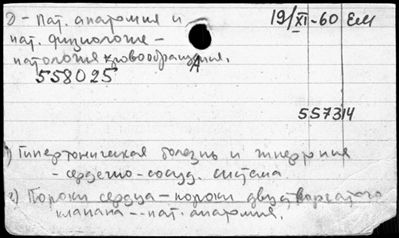 2 - Пат. анатомия и 19/XI-60 ЕМ
пат. физиология -
патология кровообращения.
558025
557314
1) Гипертоническая болезнь и
- сердечно-сосуд. система.
2) Пороки сердца - пороки двустворчатого
клапана - пат. анатомия.